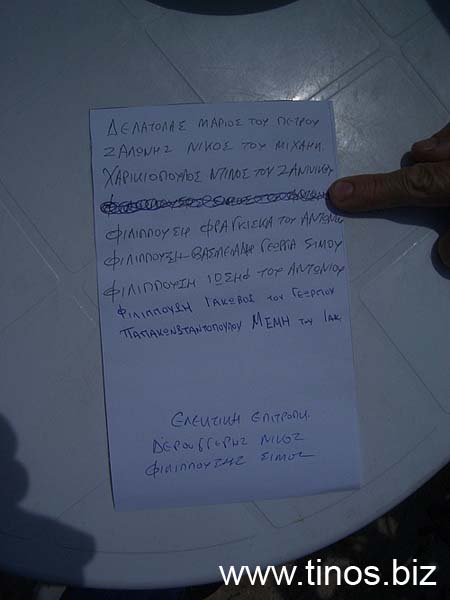 ΔΕΛΑΤΟΛΑΣ ΜΑΡΙΟΣ ΤΟΥ ΠΕΤΡΟΥ
ΖΑΛΩΝΗΣ ΝΙΚΟΣ ΤΟΥ ΜΙΧΑΗΛ
ΝΤΙΝΟΣ ΤΟΥ
ΦΙΛΙΠΠΟΥΣΗ ΦΡΑΓΚΙΣΚΑ ΤΟΥ ΑΝΤΩΝΙΟΥ
ΦΙΛΙΠΠΟΥΣΗ ΓΕΩΡΓΙΑ ΣΙΜΟΥ
ΦΙΛΙΠΠΟΥΣΗ ΙΩΣΗΦ ΤΟΥ ΑΝΤΩΝΙΟΥ
ΦΙΛΙΠΠΟΥΣΗ ΙΑΚΩΒΟΣ ΤΟΥ ΓΕΩΡΓΙΟΥ
ΠΑΠΑΚΩΝΣΤΑΝΤΟΠΟΥΛΟΥ ΜΕΜΗ ΤΟΥ ΙΑΚ.
ΕΛΕΚΤΙΚΗ ΕΠΙΤΡΟΠΗ
ΝΙΚΟΣ
ΦΙΛΙΠΠΟΥΣΗΣ ΣΙΜΟΣ
www.tinos.biz